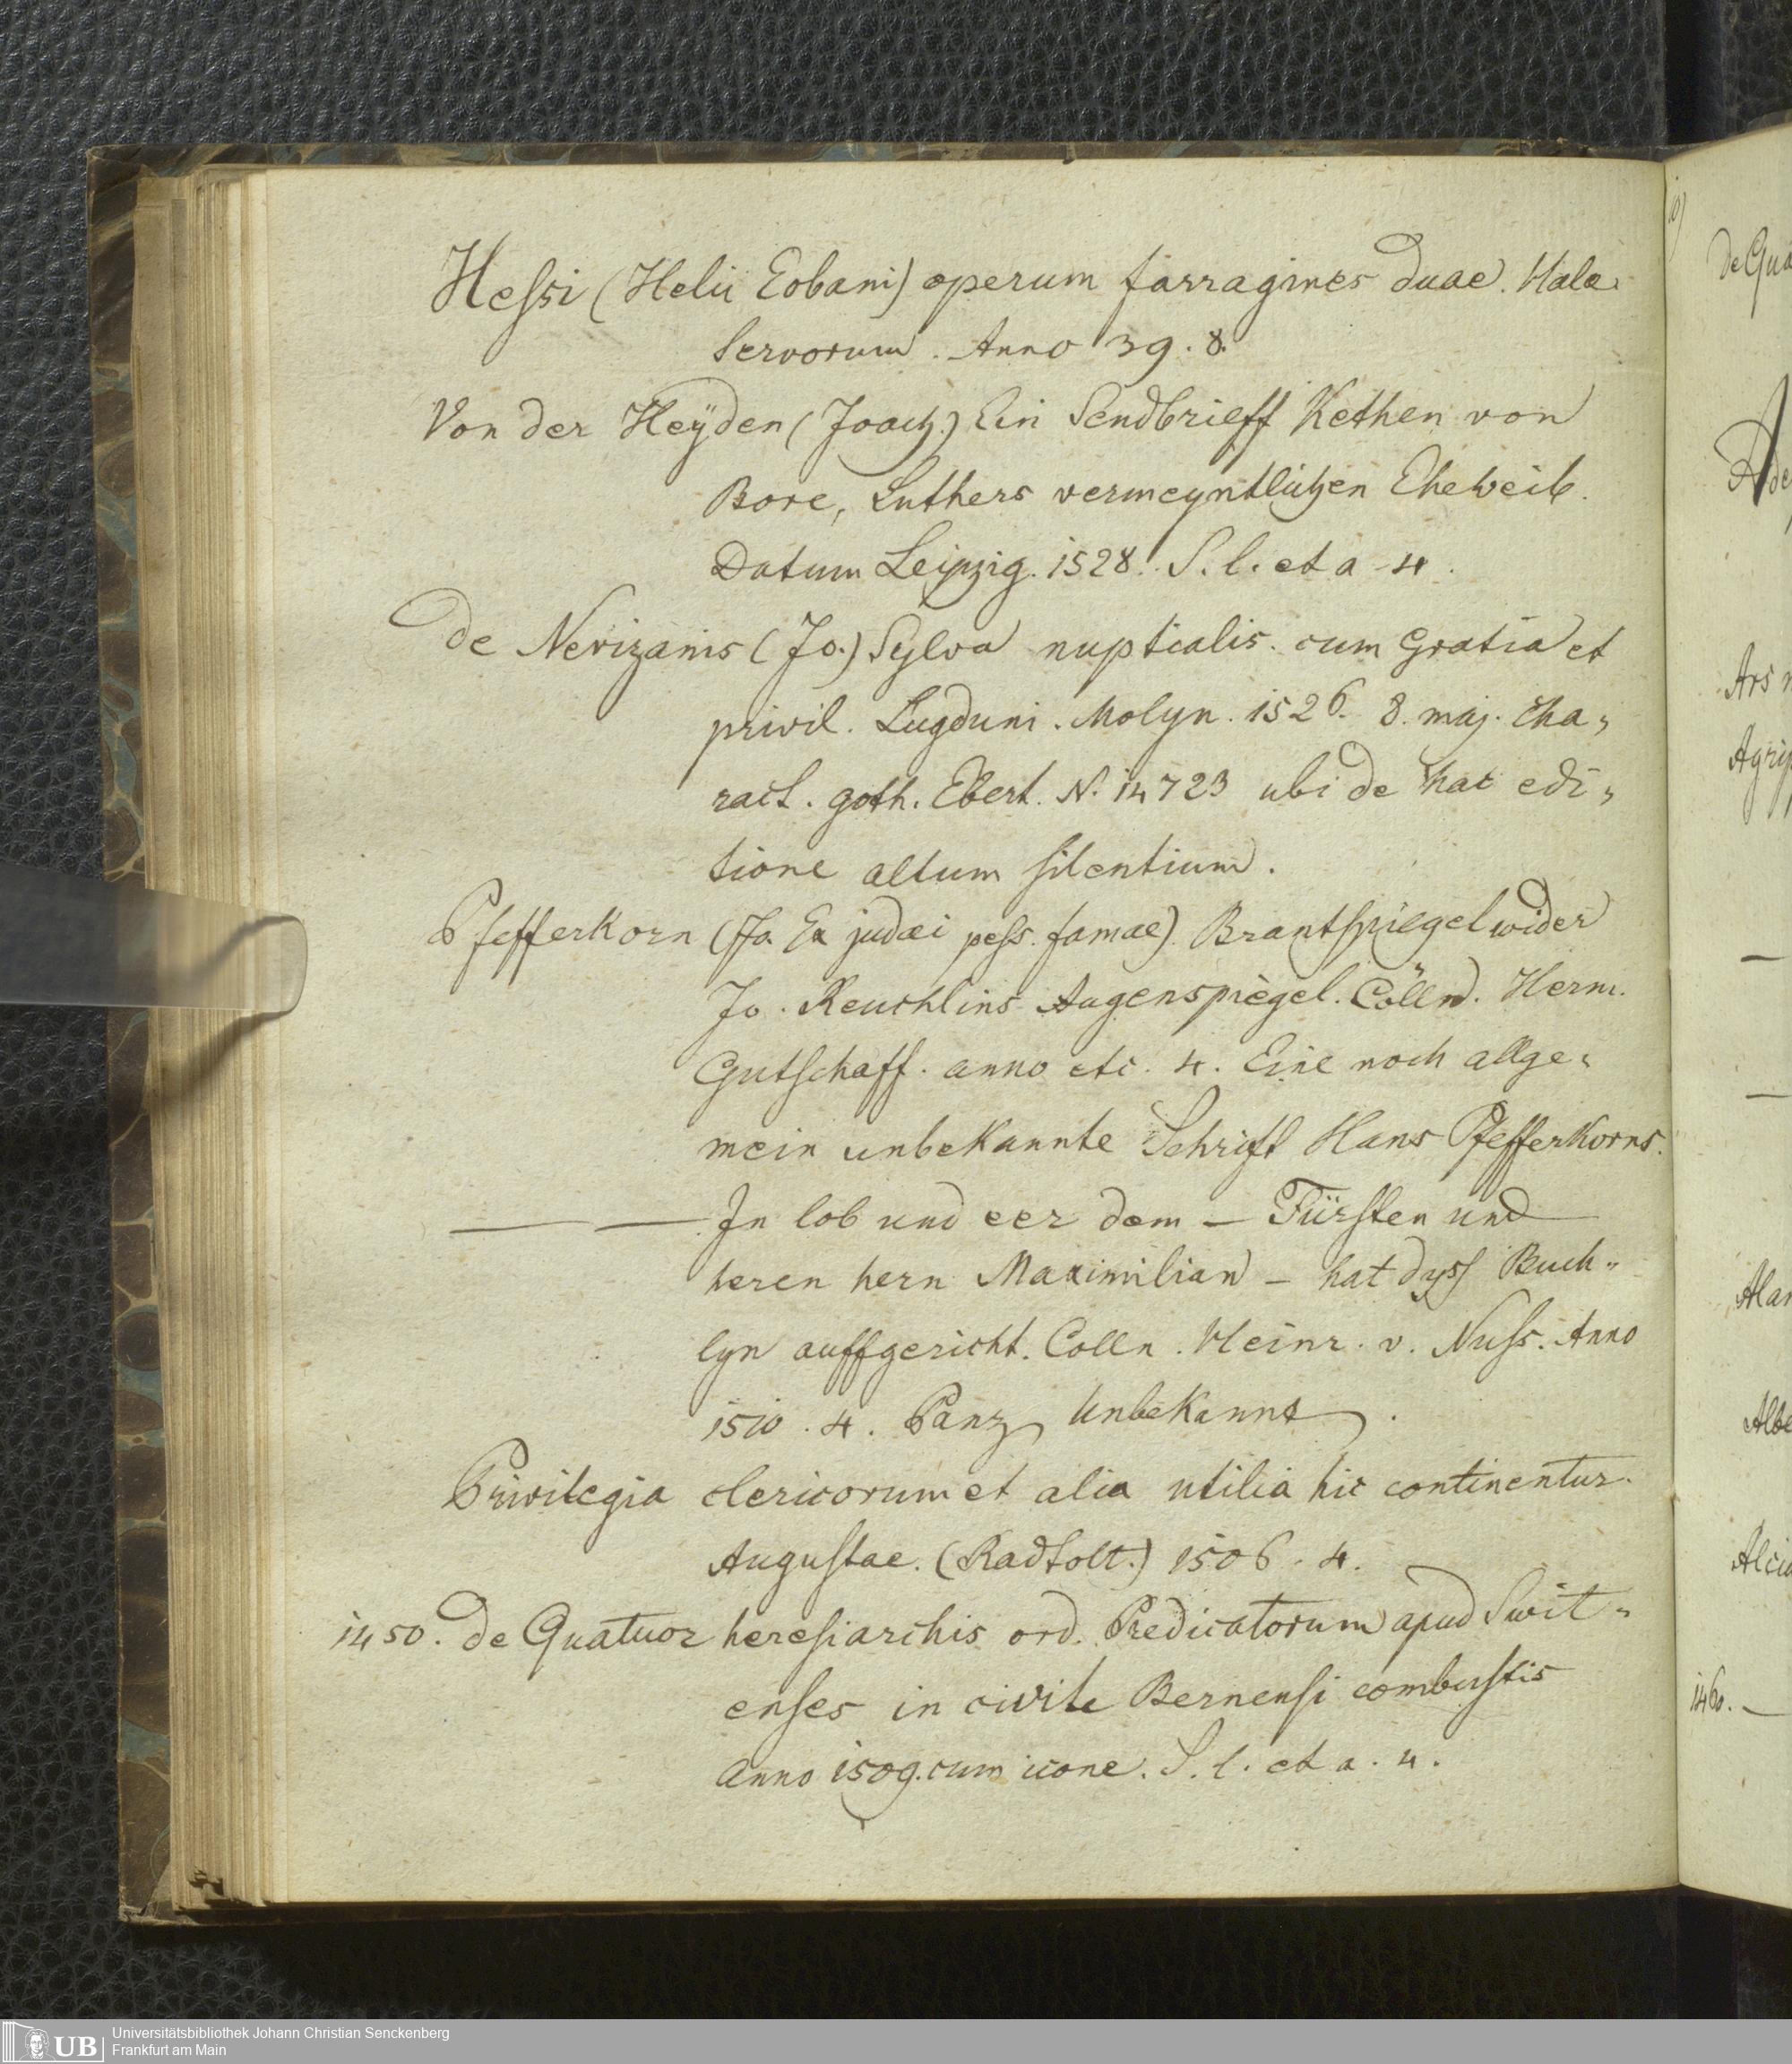 Hessi (Helii Eobani) operum farragines duae. Halae
Servorum. Anno 39. 8.
Von der Heÿden (Joach.) Ein Sendbrieff Kethen von
Bore, Luthers vermeyntlichen Eheweib.
Datum Leipzig. 1528. S. l. et a 4.
de Nevizanis (Jo.) Sylva nuptialis. cum Gratia et
privil. Lugduni. Molyn. 1526. 8. maj. Cha„
ract. goth. Ebert. N. 14723 ubi de hac edi„
tione altum silentium.
Pfefferkorn (Jo. Ex judaei pess. famae). Brantspiegel wider
Jo. Reuchlins Augenspiegel. Cölln. Herm.
Gutschaff. anno etc. 4. Eine noch allge„
mein unbekannte Schrift Hans Pfefferkorns.
— — In lob und eer dem — Fürsten und
heren hern Maximilian — hat dyss Buch„
lyn auffgericht. Colln. Heinr. v. Nuss. Anno
1510. 4. Panz. Unbekannt.
Privilegia clericorum et alia utilia hic continentur.
Augustae. (Radtolt.) 1506. 4.
1450. de Quatuor heresiarchis ord. Predicatorum apud Swit„
enses in civite Bernensi combustis
anno 1509. cum icone. S. l. et a. 4.
de Qua
Ars
Agrip
Alan
Albe
Alcia
1460. —
UB
Universitätsbibliothek Johann Christian Senckenberg
Frankfurt am Main